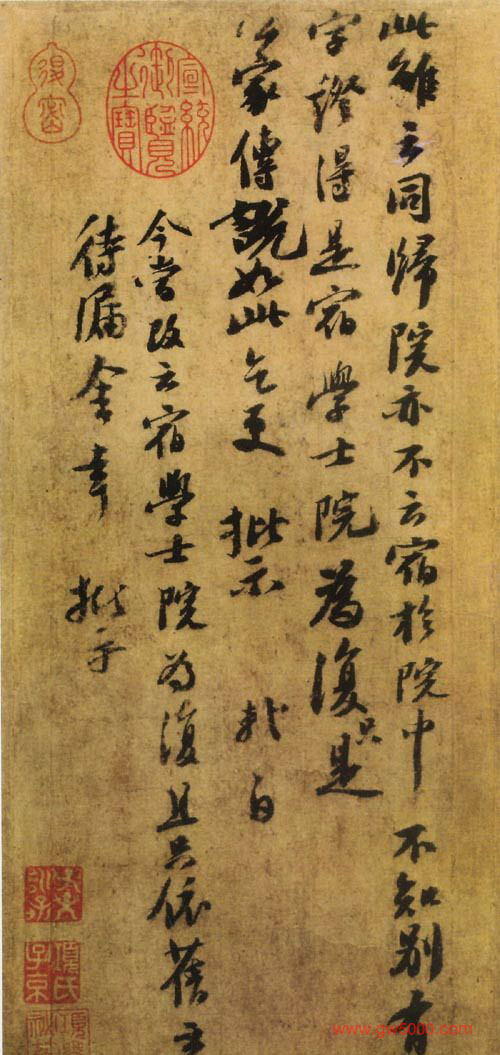 此雖云同歸院亦不云宿於院中 不知別有
字證得是宿學士院為復只是
家傳說如此乞更 批示 軾白
今當改云宿學士院為復且只依舊云
待漏舍幸 批示
宣統御覽之寶
項氏子京
www.gw5000.com